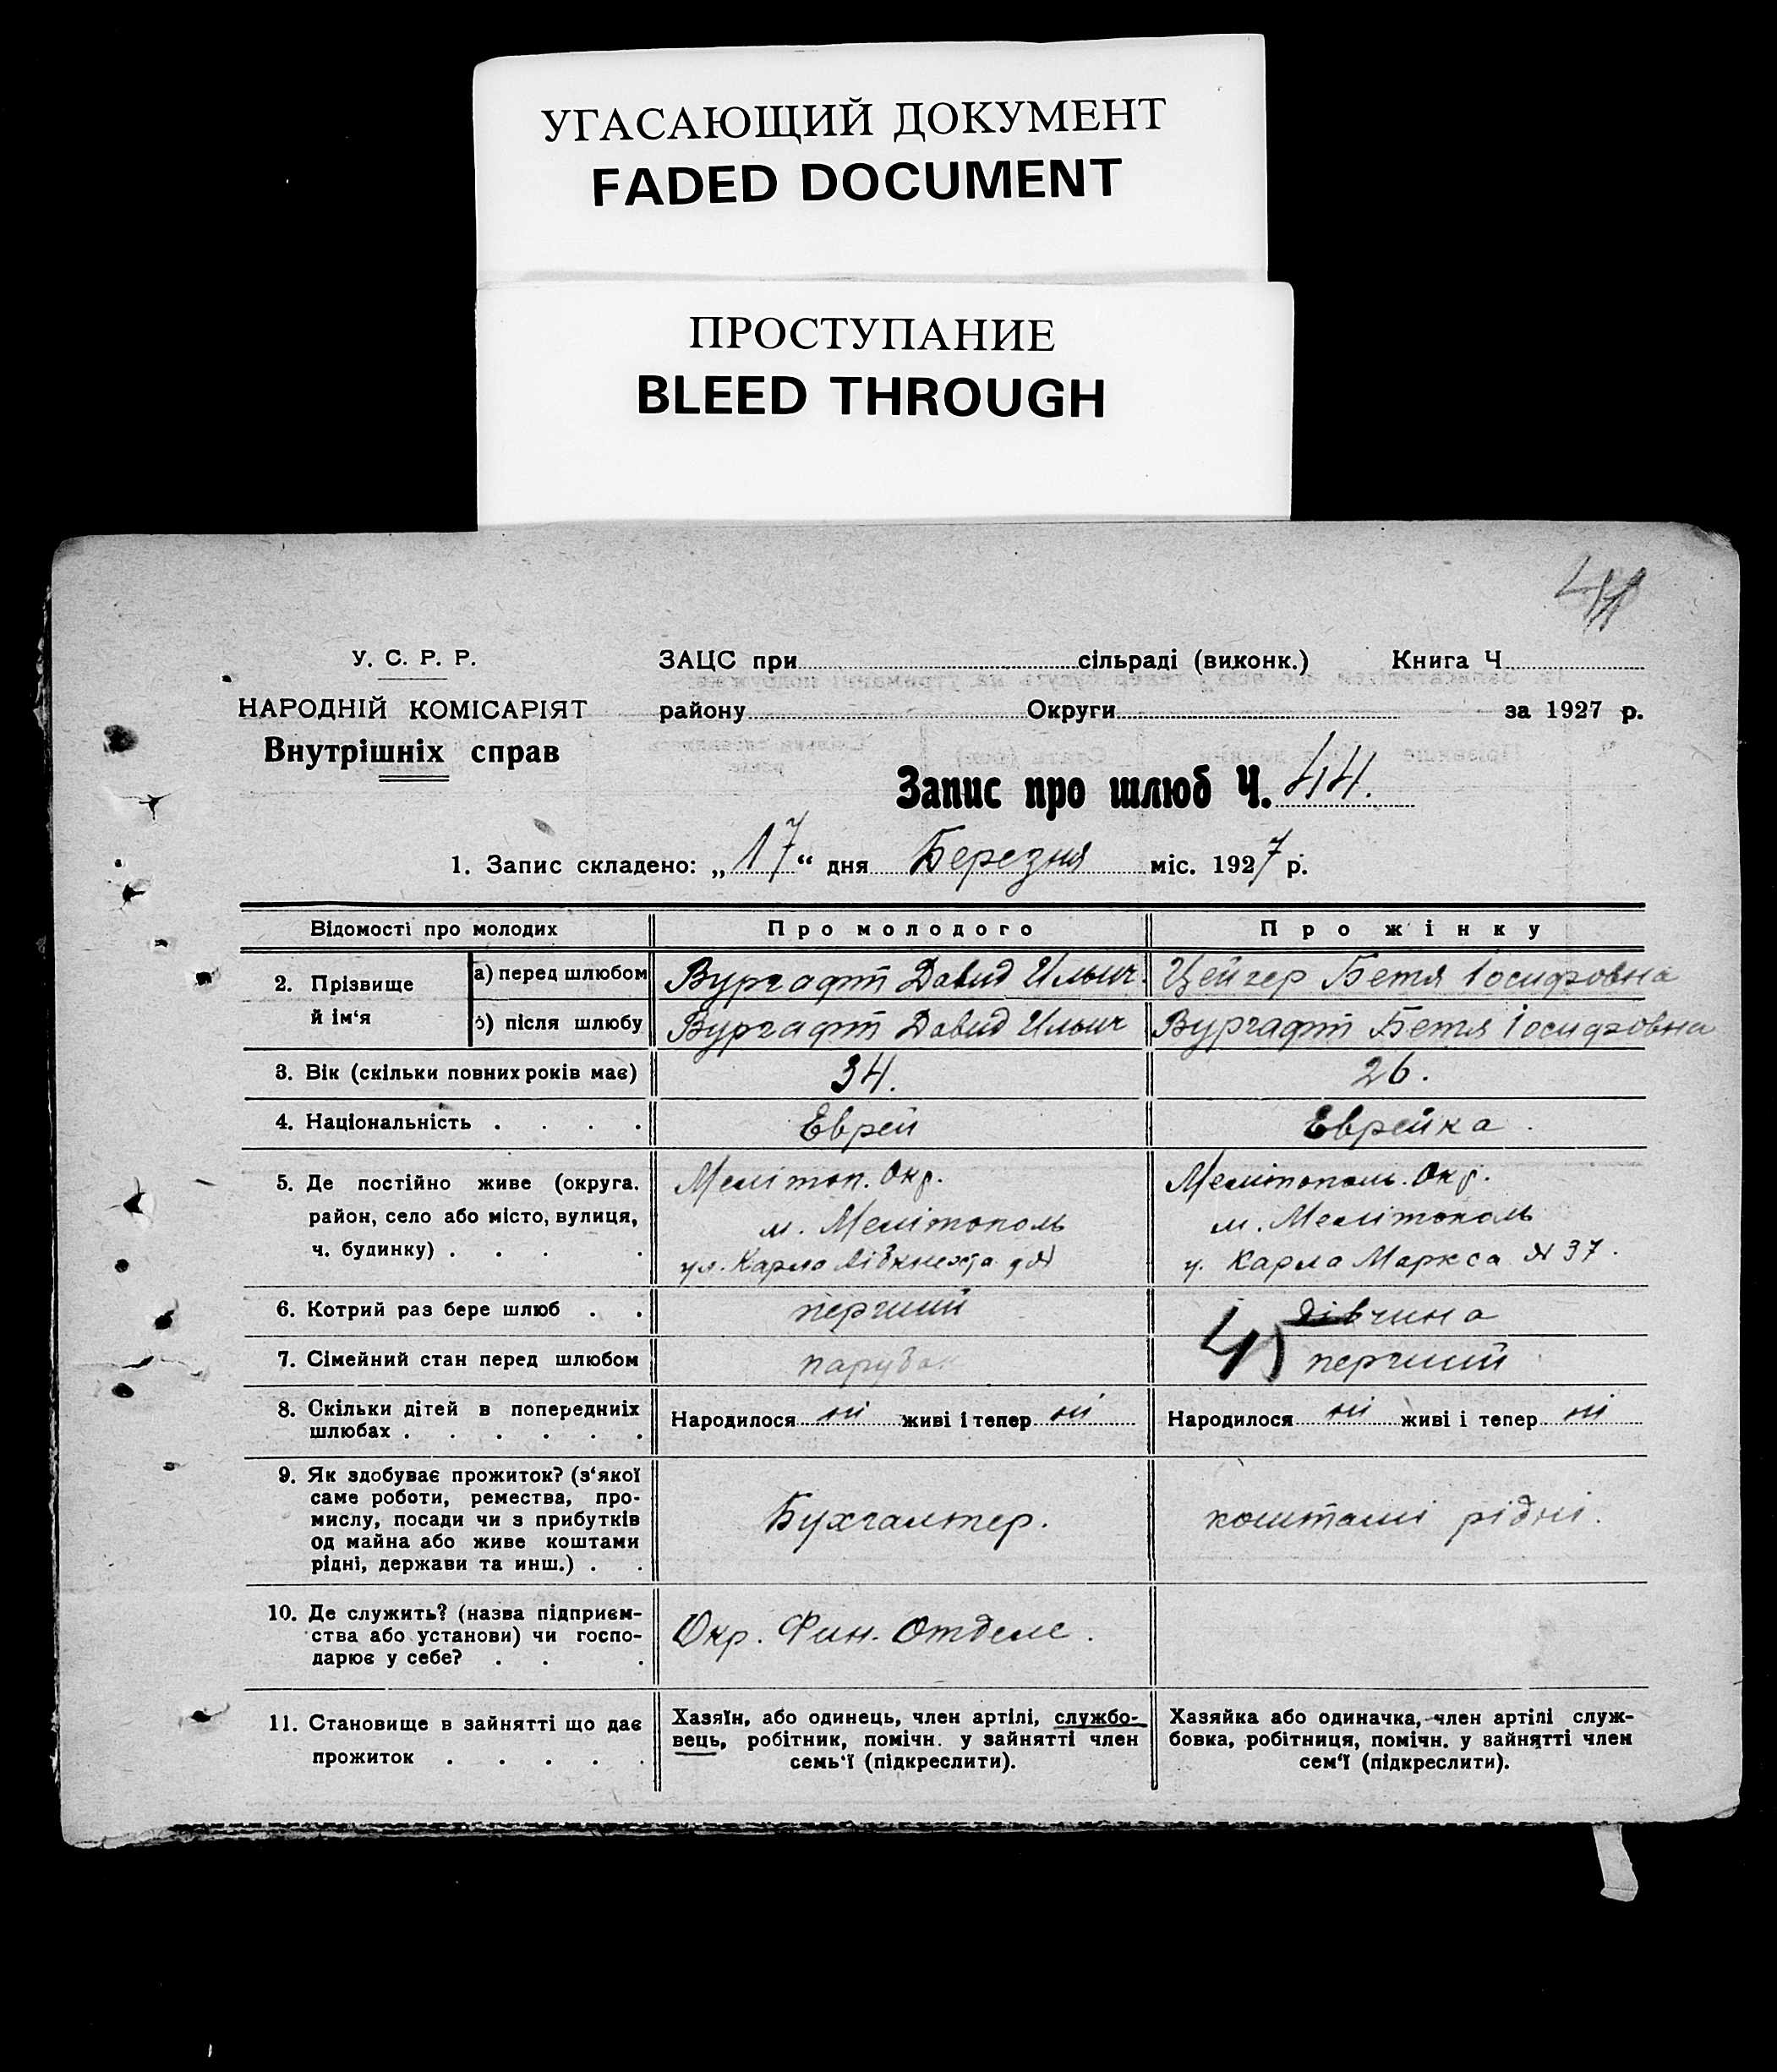 УГАСАЮЩИЙ ДОКУМЕНТ
FADED DOCUMENT
ПРОСТУПАНИЕ
BLEED THROUGH
У. С. Р. Р.
НАРОДНІЙ КОМІСАРІЯТ
Внутрішніх справ
ЗАЦС при сільраді (виконк.) Книга Ч
району Округи за 1927 р.
Запис про шлюб Ч. 44.
1. Запис складено: „17“ дня Березня міс. 1927 р.
Відомості про молодих Про молодого Про жінку
2. Прізвище й ім‘я
а) перед шлюбом Вургафт Давид Ильич. Цейгер Бетя Іосифовна
б) після шлюбу Вургафт Давид Ильич Вургафт Бетя Іосифовна
3. Вік (скільки повних років має) 34. 26.
4. Національність . . . . Еврей Еврейка.
5. Де постійно живе (округа.
район, село або місто, вулиця,
ч. будинку) . . . .
Мелітоп. Окр.
м. Мелітополь
ул. Карла
Мелітополь. Окр.
м. Мелітополь
у. Карла Маркса N 37.
6. Котрий раз бере шлюб . . перший дівчина
7. Сімейний стан перед шлюбом парубок 45 перший
8. Скільки дітей в попередниіх
шлюбах . . . . . .
Народилося ні живі і тепер ні
Народилося ні живі і тепер ні
9. Як здобуває прожиток? (з‘якої
саме роботи, ремества, про-
мислу, посади чи з прибутків
од майна або живе коштами
рідні, держави та инш.) . .
Бухгалтер.
коштами рідні.
10. Де служить? (назва підприєм-
ства або установи) чи госпо-
дарює у себе? . . .
Окр. Фин. Отделе.
11. Становище в зайнятті що дає
прожиток . . . . .
Хазяїн, або одинець, член артілі, службо-
вець, робітник, помічн. у зайнятті член
семь‘ї (підкреслити).
Хазяйка або одиначка, член артілі служ-
бовка, робітниця, помічн. у зайнятті член
сем‘ї (підкреслити).